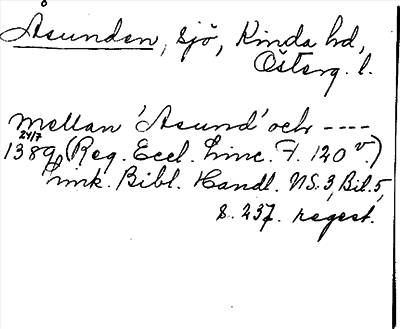 Åsunden, sjö, Kinda hd,
Österg. l.
Mellan 'Asund' och ----
24/7
1389 (Reg. Eccl. Linc. F. 120 v.)
Link. Bibl. Handl. NS. 3, Bil. 5,
s. 237. regest.